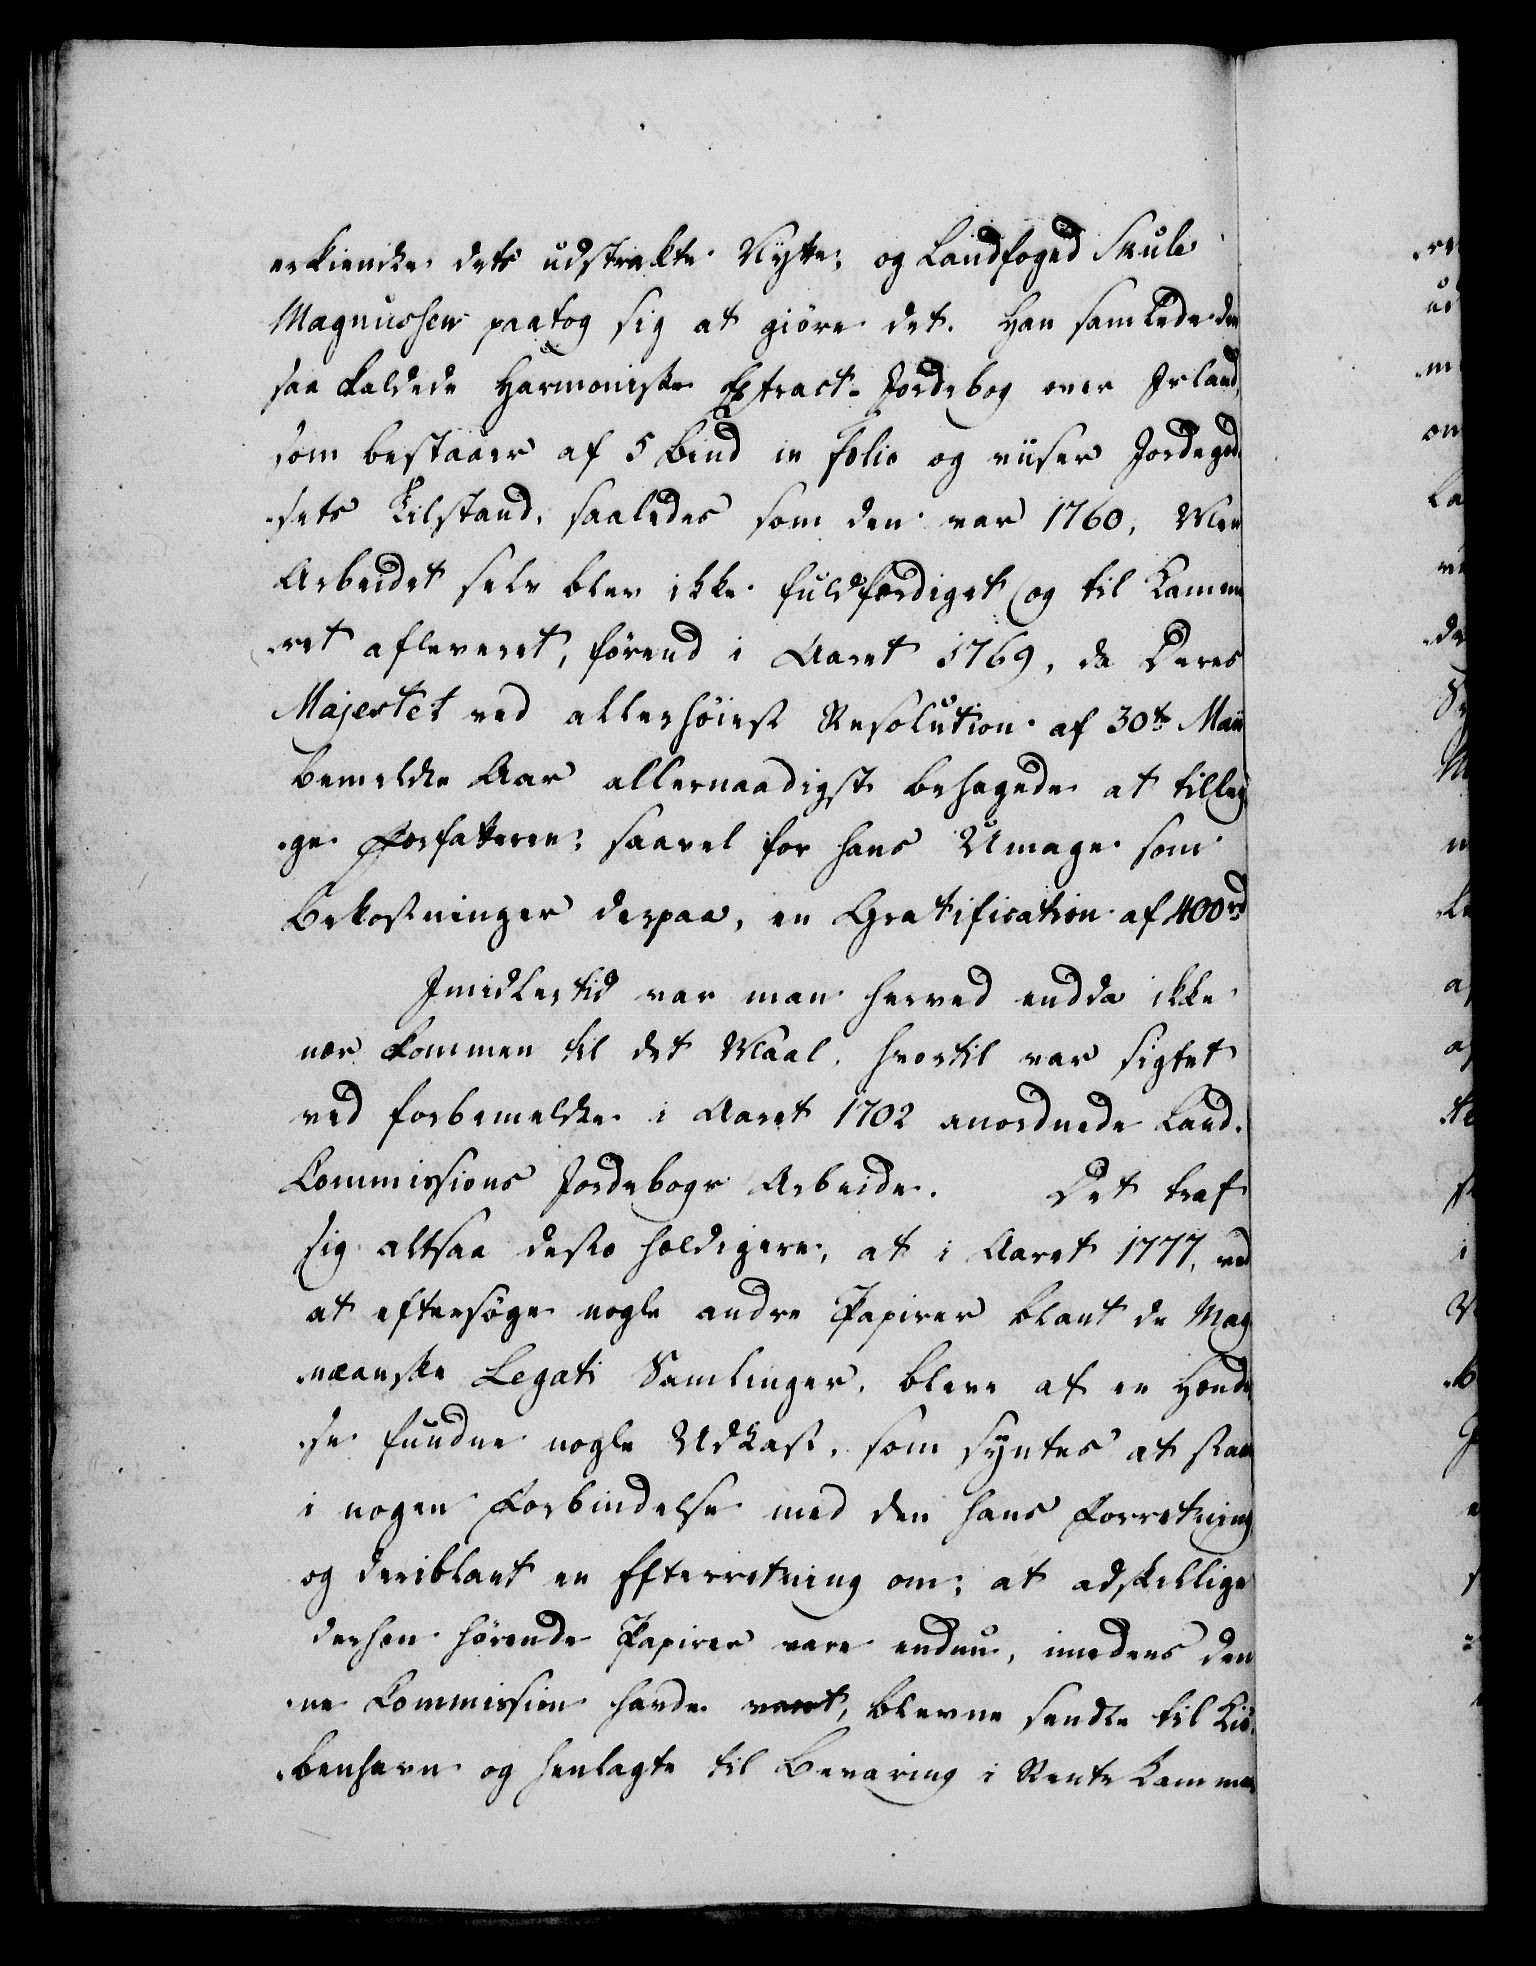 erkiendte dets udstrakte Nytte; og Landfoged Skule
Magnussen paatog sig at giöre det. Han samlede den
saa kaldede Harmoniske Extract-Jordebog over Island,
som bestaaer af 5 bind in folio og viiser Jordegod-
sets Tilstand, saaledes som den var 1760, Men
Arbeidet selv blev ikke fuldfærdiget og til Kamme
ret afleveret, förend i Aaret 1769, da Deres
Majestet ved allerhöiest Resolution af 30te Maii
bemeldte Aar allernaadigst behagede at tilleg
ge Forfatteren; saavel for hans Umage som
Bekostninger derpaa, en Gratification af 400 rd
Imidlertid var man herved endda ikke
nær kommen til det Maal, hvortil var sigtet
ved forbemeldte i Aaret 1702 anordnede Land-
Commissions Jordebogs Arbeide. Det traf
sig altsaa desto heldigere, at i Aaret 1777, ved
at eftersöge nogle andre Papirer blant de Mag
næanske Legati Samlinger, bleve af en Hænde
se fundne nogle Udkast, som syntes at staae
i nogen Forbindelse med den hans Forretning
og deriblant en Efterretning om; at adskellige
derhen hörende Papirer vare endnu, imedens den
ne Commission havde varet, blevne sendte til Kiö-
benhavn og henlagte til Bevaring i Rente Kammer